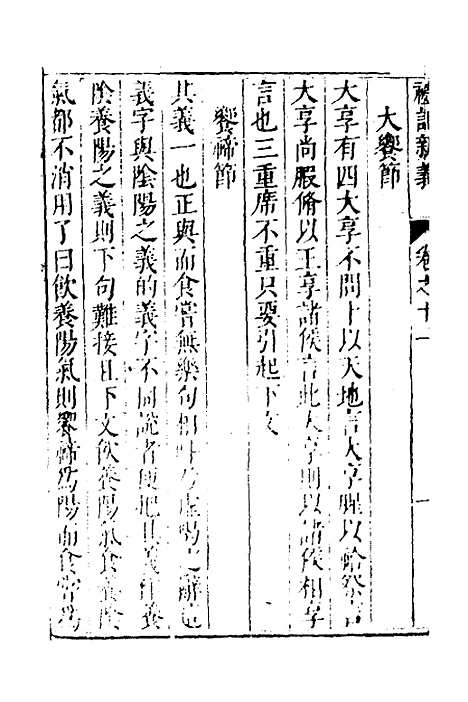 禮記新義 卷之十一
大饗節
大享有四大享不問卜以天地言大享腥以祫祭言
大享尚腶脩以王享諸侯言此大享則以諸侯相享
言也三重席不重只要引起下文
饗禘節
其義一也正與而食嘗無樂句相叫乃虛喝之辭也
義字與陰陽之義的義字不同說者便把其義作養
陰養陽之義則下句難接且下文飲養陽氣食養陰
氣都不消用了曰飲養陽氣則饗禘為陽而食嘗為